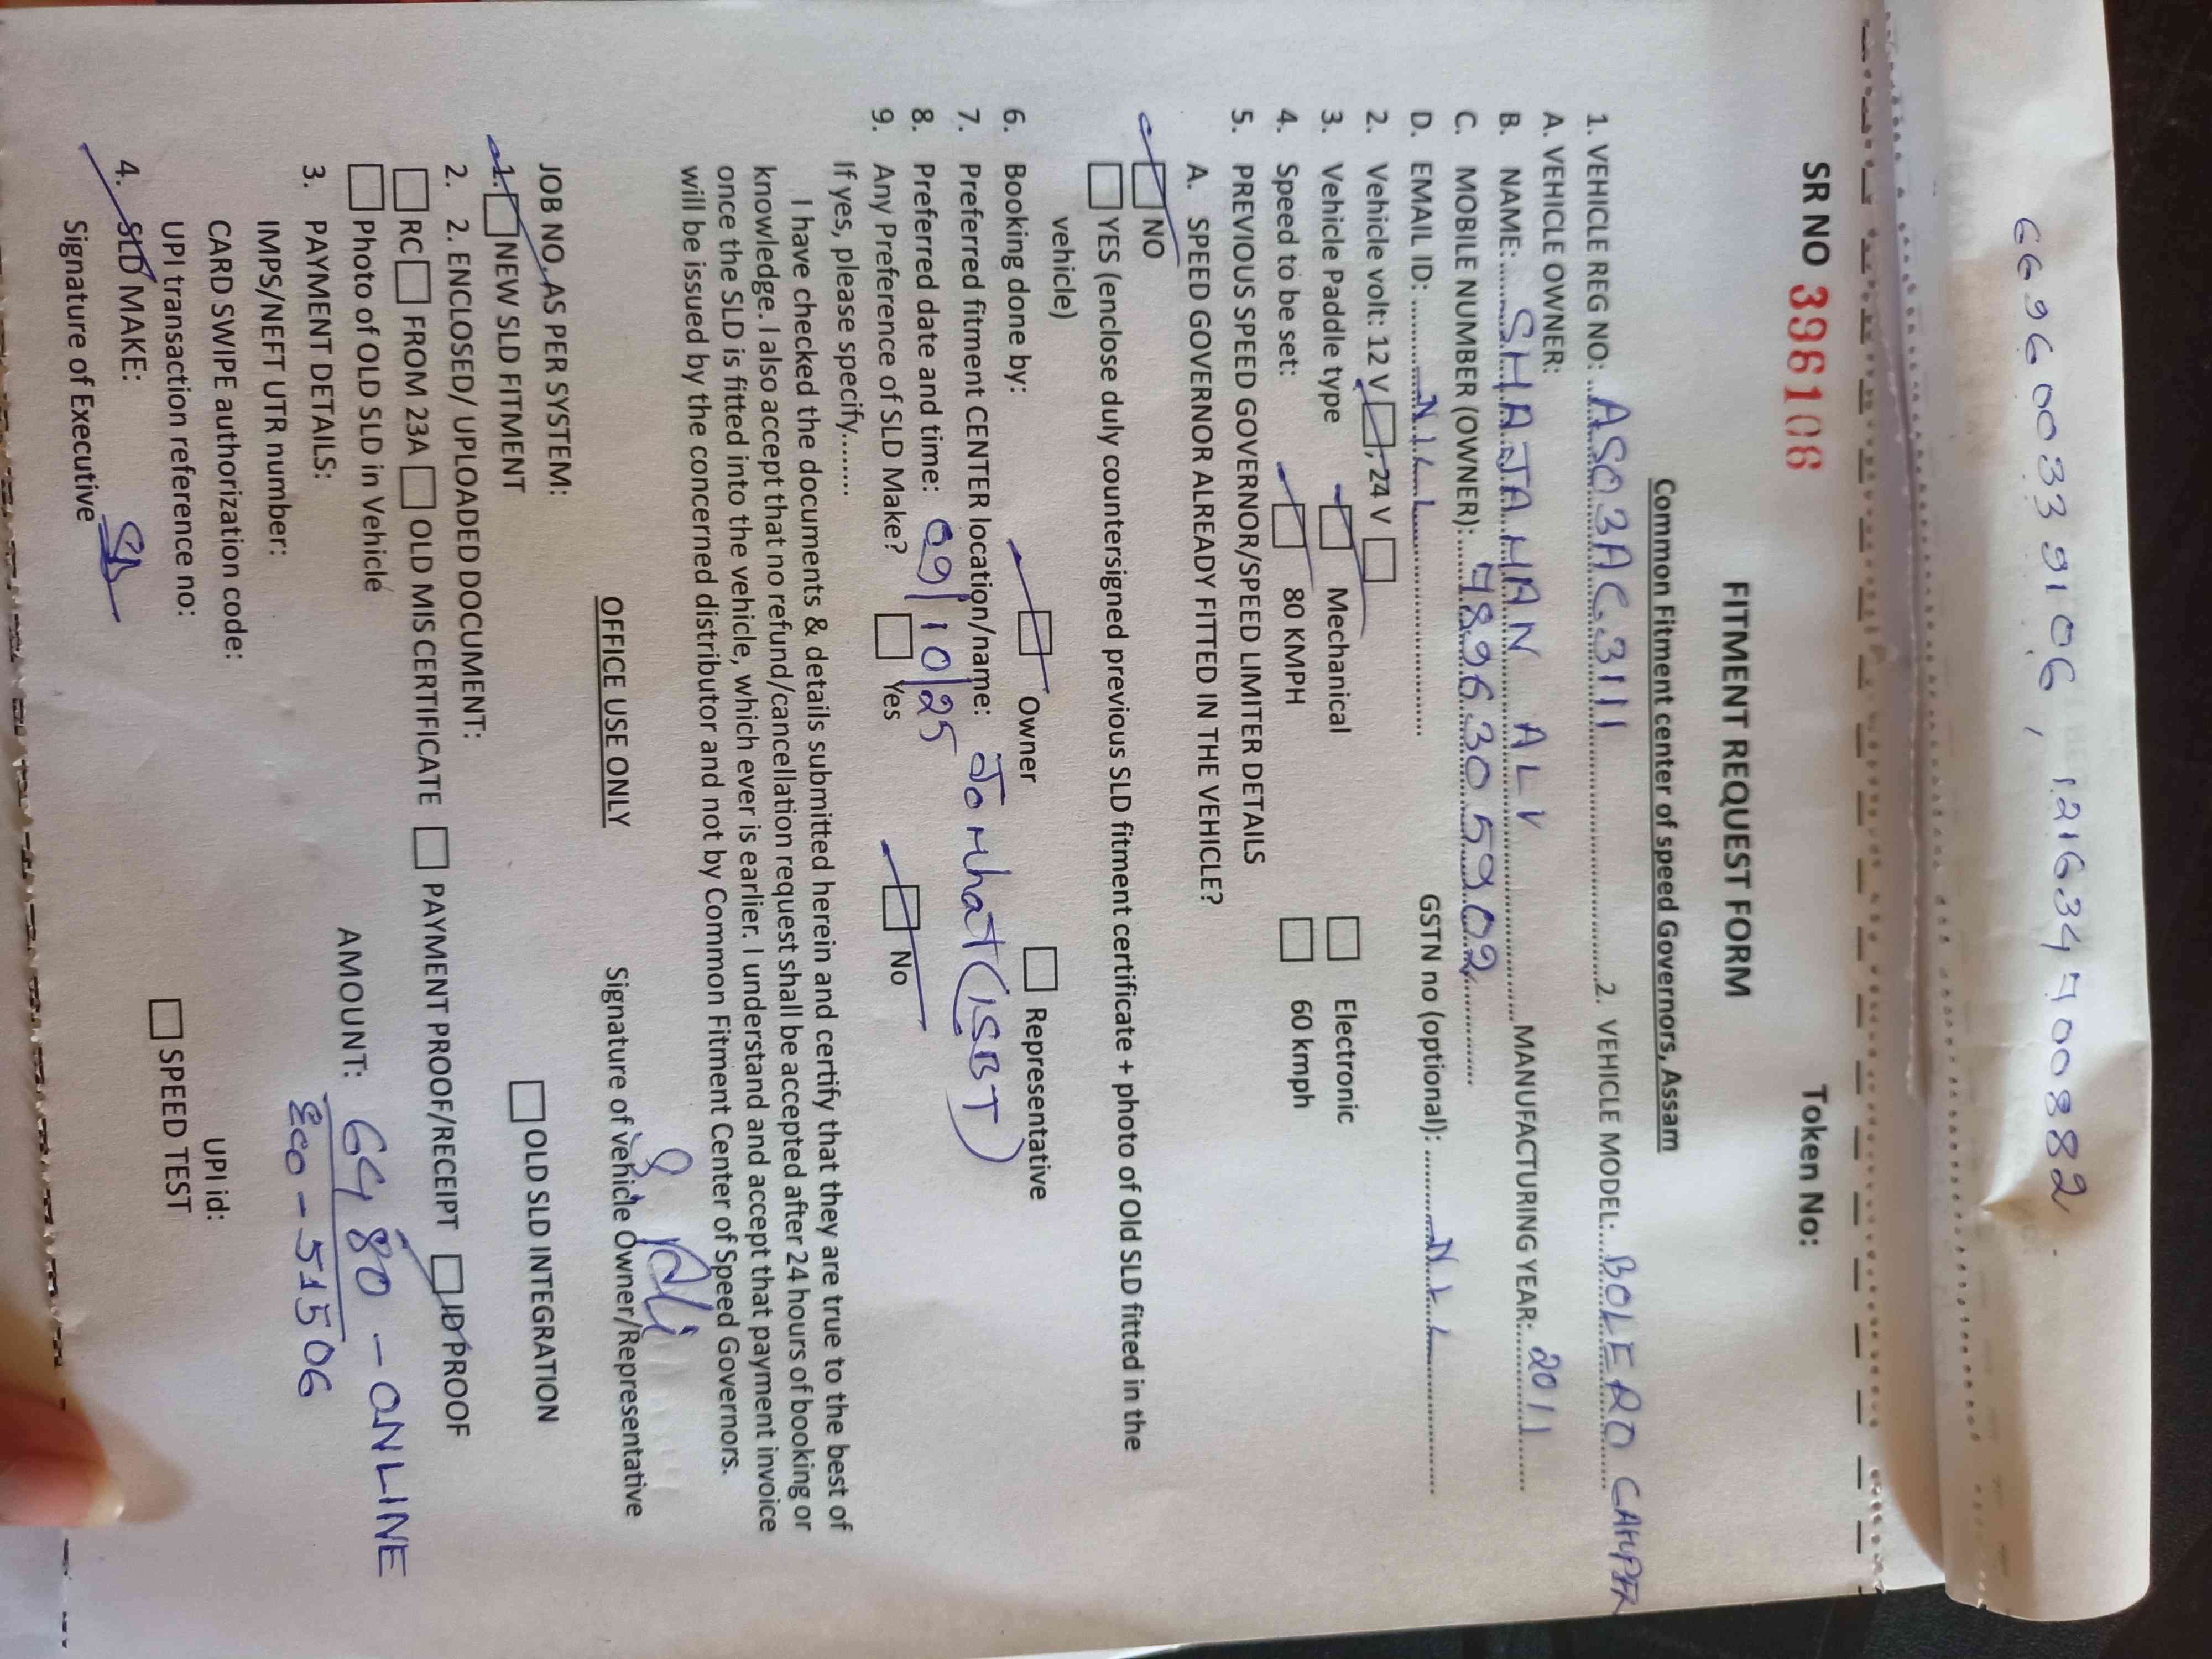 669600339106, 1216347700882
SR NO 396106 Token No:
FITMENT REQUEST FORM
Common Fitment center of speed Governors, Assam
1. VEHICLE REG NO: AS03AC3111 2. VEHICLE MODEL: BOLERO CAMPER
A. VEHICLE OWNER:
B. NAME: SHAJAHAN ALI MANUFACTURING YEAR: 2011
C. MOBILE NUMBER (OWNER): 7896305902
D. EMAIL ID: NIL GSTN no (optional): NIL
2. Vehicle volt: 12 V, 24 V
3. Vehicle Paddle type Mechanical Electronic
4. Speed to be set: 80 KMPH 60 kmph
5. PREVIOUS SPEED GOVERNOR/SPEED LIMITER DETAILS
A. SPEED GOVERNOR ALREADY FITTED IN THE VEHICLE?
NO
YES (enclose duly countersigned previous SLD fitment certificate + photo of Old SLD fitted in the
vehicle)
6. Booking done by: Owner Representative
7. Preferred fitment CENTER location/name: Jorhat (ISBT)
8. Preferred date and time: 09/10/25
9. Any Preference of SLD Make? Yes No
If yes, please specify.......
I have checked the documents & details submitted herein and certify that they are true to the best of
knowledge. I also accept that no refund/cancellation request shall be accepted after 24 hours of booking or
once the SLD is fitted into the vehicle, which ever is earlier. I understand and accept that payment invoice
will be issued by the concerned distributor and not by Common Fitment Center of Speed Governors.
S. Ali
Signature of vehicle Owner/Representative
OFFICE USE ONLY
JOB NO. AS PER SYSTEM:
1. NEW SLD FITMENT OLD SLD INTEGRATION
2. 2. ENCLOSED/ UPLOADED DOCUMENT:
RC FROM 23A OLD MIS CERTIFICATE PAYMENT PROOF/RECEIPT ID PROOF
Photo of OLD SLD in Vehicle
3. PAYMENT DETAILS: AMOUNT: 6480 - ONLINE
IMPS/NEFT UTR number: Eco - 51506
CARD SWIPE authorization code:
UPI transaction reference no: UPI id:
4. SLD MAKE: SPEED TEST
Signature of Executive